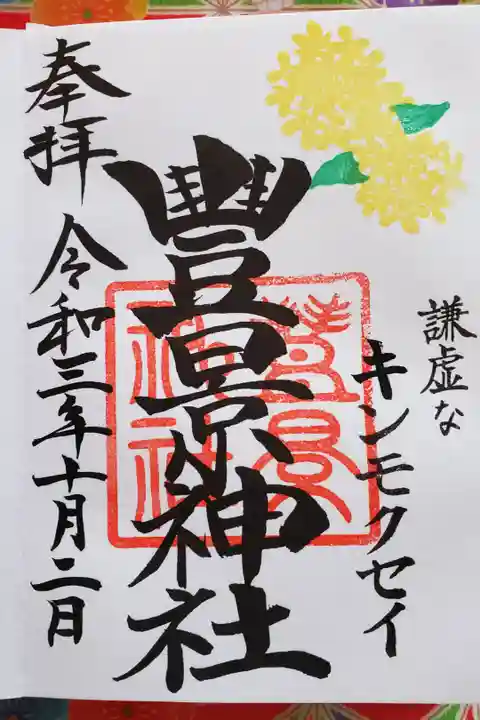 謙虚な
キンモクセイ
豊景神社
奉拝
令和三年十月二日